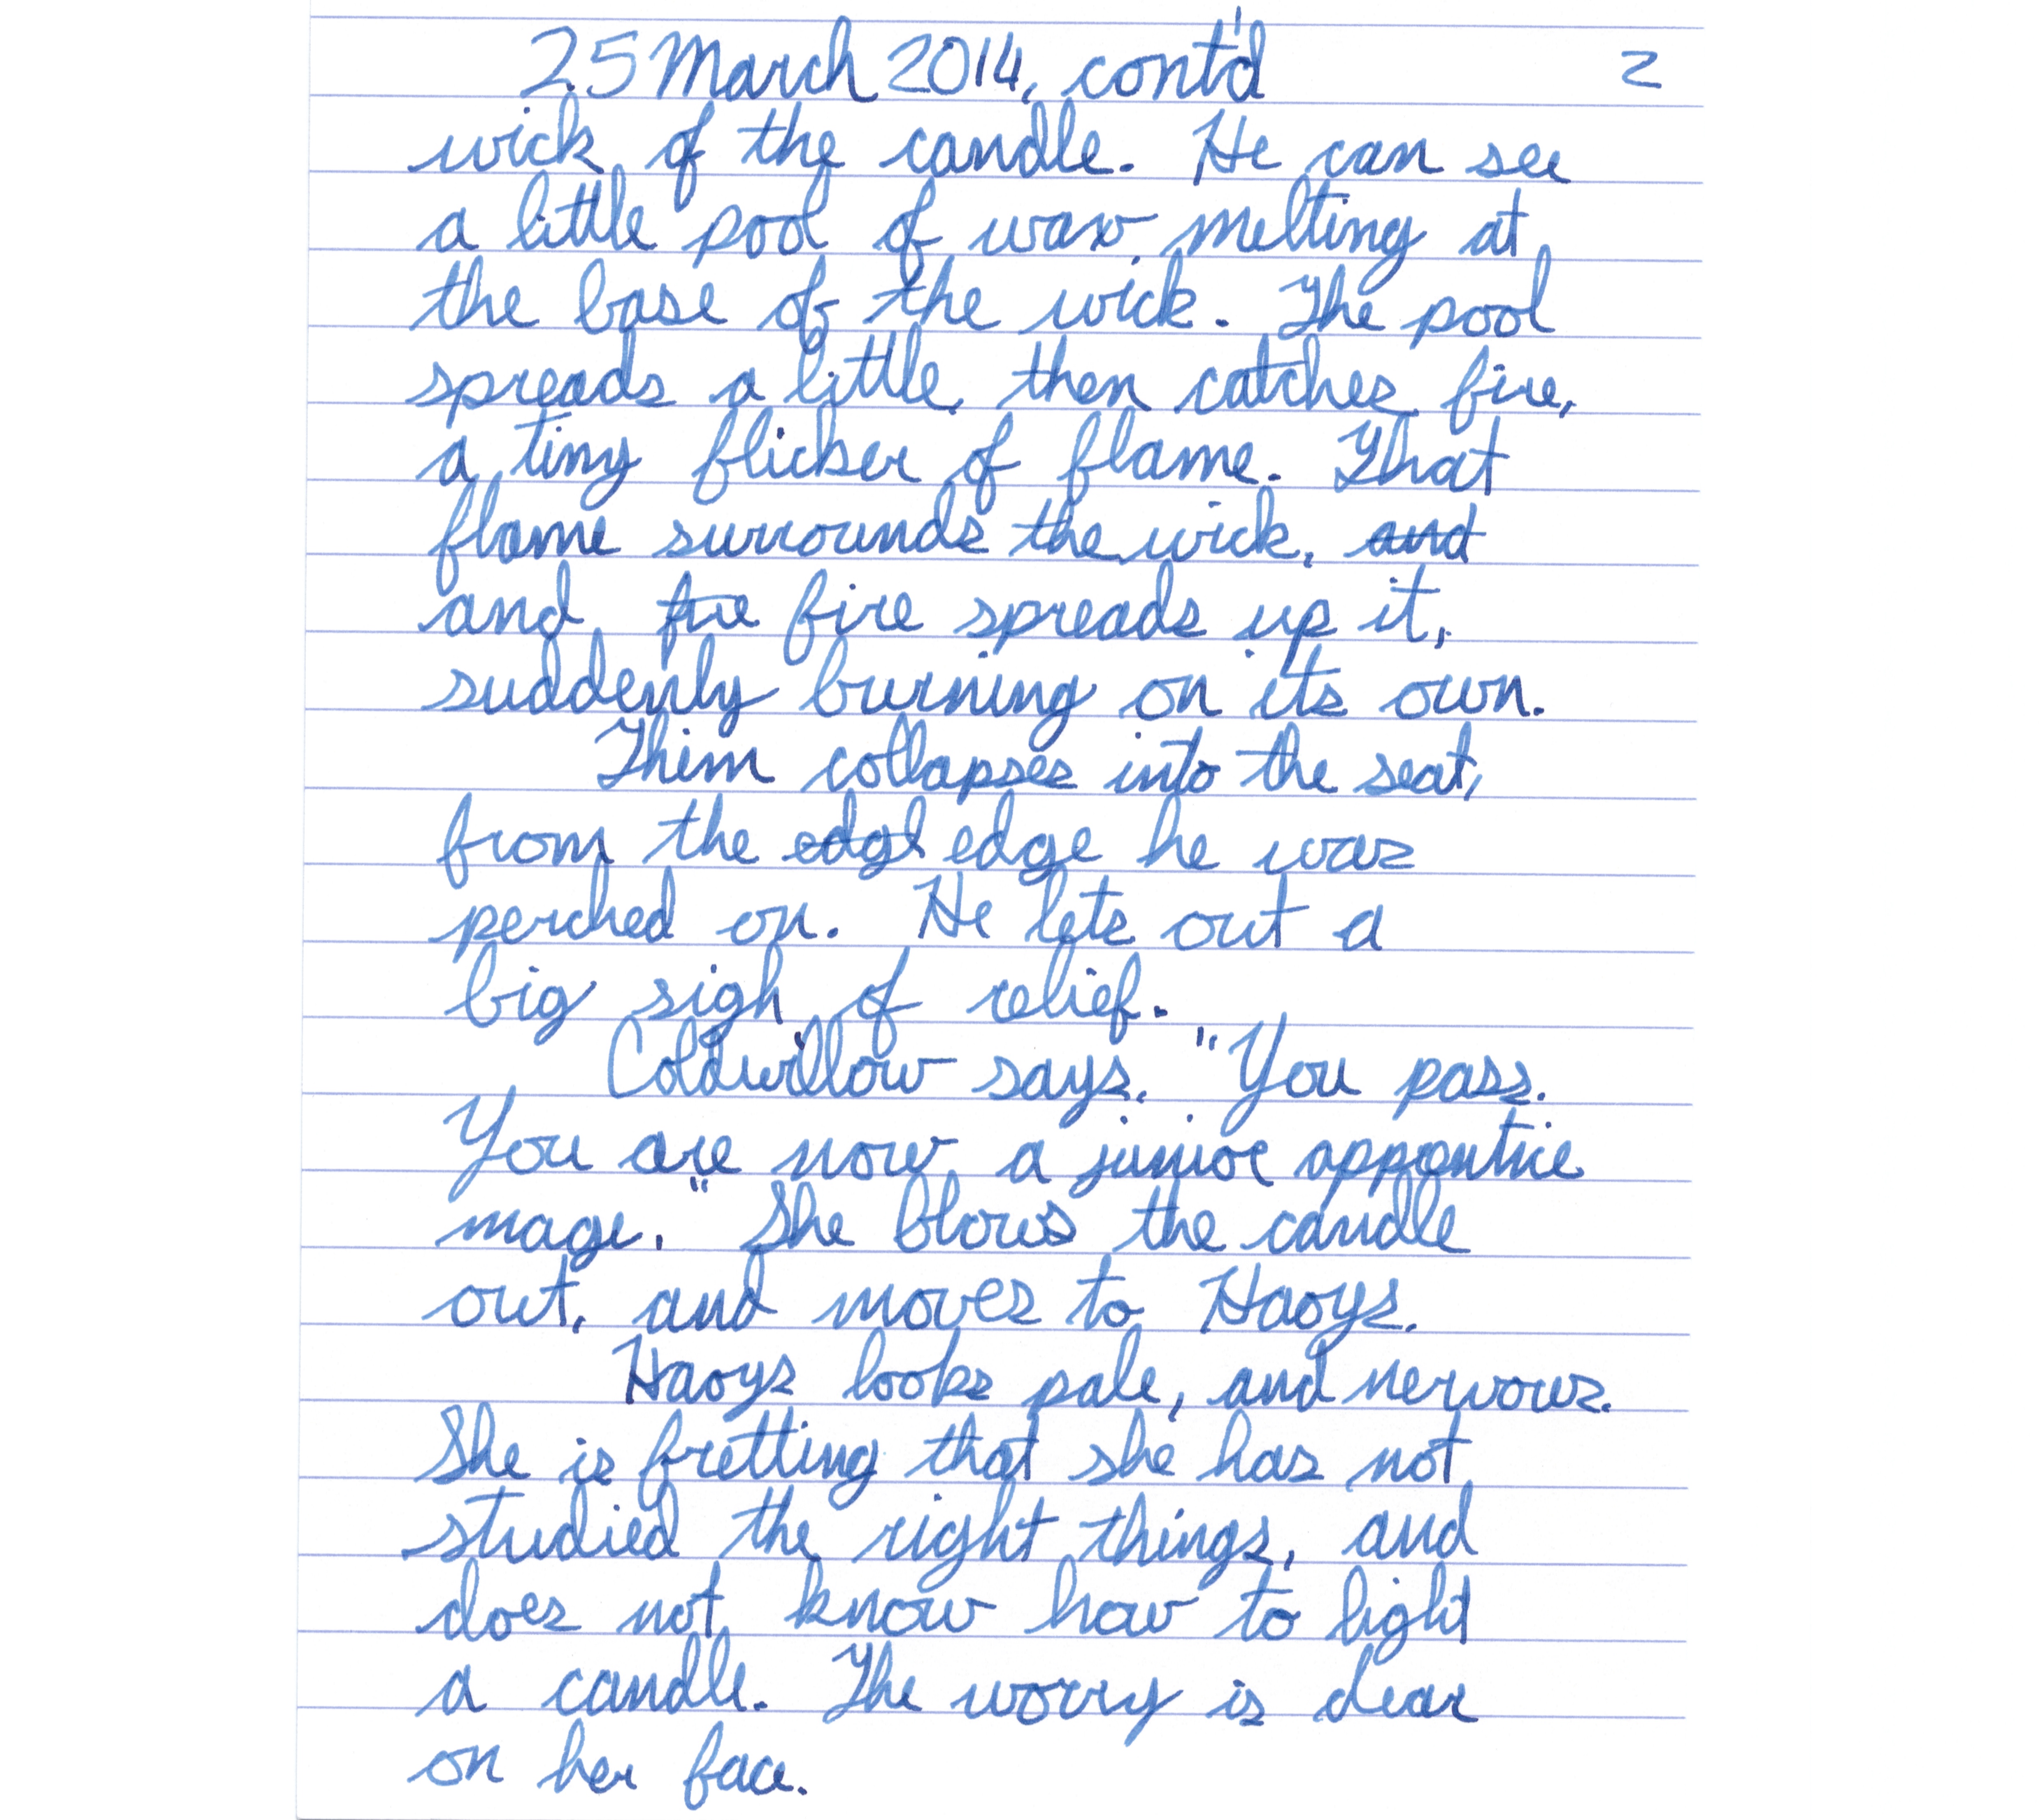 25 March 2014, cont'd 2
wick of the candle. He can see
a little pool of wax melting at
the base of the wick. The pool
spreads a little, then catches fire,
a tiny flicker of flame. That
flame surrounds the wick, and
and fire fire spreads up it,
suddenly burning on its own.
Thim collapses into the seat,
from the edge edge he was
perched on. He lets out a
big sigh of relief.
Coldwillow says, "You pass.
You are now a junior apprentice
mage." She blows the candle
out, and moves to Haoys.
Haoys looks pale, and nervous.
She is fretting that she has not
studied the right things, and
does not know how to light
a candle. The worry is clear
on her face.